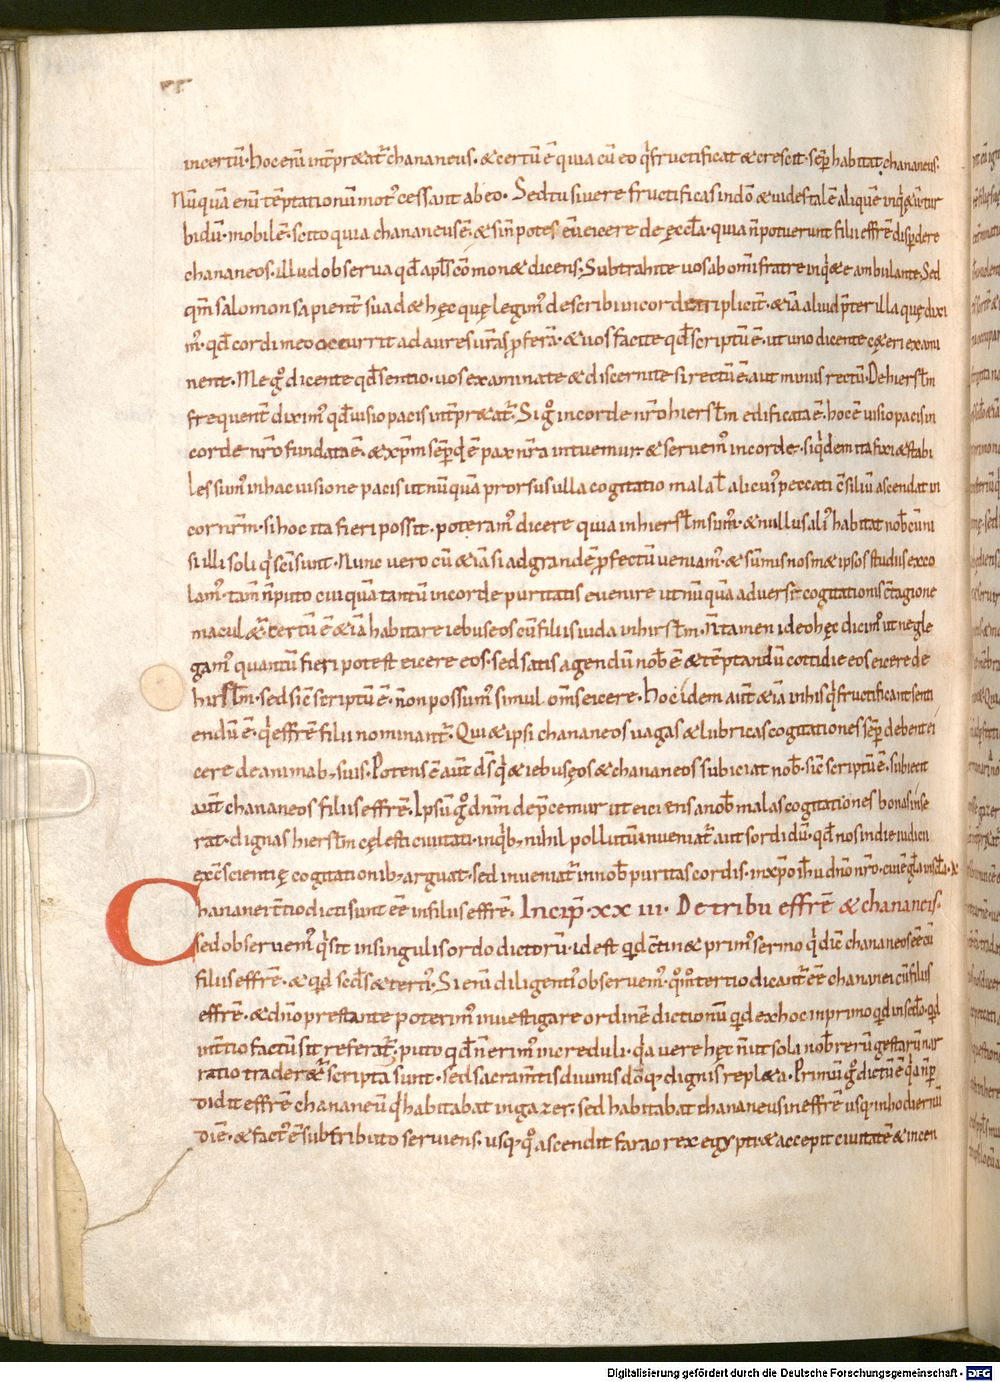 incertū· hoc enī intp̄r&at᷑ chananeus· & certū ē quia cū eo q̇ fructificat & crescit· semp̄ habitat chananeus·
Nūquā enī tēptationū mot᷒ cessant ab eo· Sed tu si vere fructificas in dō & uides talē aliquē inq̇&ū tur
bidū· mobilē· scito quia chananeus ē· & si n̄ potes eū eicere de ęccƚa· quia n̄ potuerunt filii effrē disp̱dere
chananeos· illud obserua qđ apƚs cō mon& dicens; Subtrahite uos ab omī fratre inq̇&e ambulante· Sed
qm̄ salomon sapient᷑ suad& hęc quę legim᷒ describi in corde tripliciť· &iā aliud p̄ter illa quę dixi
m᷒· qđ cordi meo occurrit ad aures ur̄as p̱ferā· & uos facite qđ scriptū ē· ut uno dicente cę&eri exami
nent· Me gͦ dicente qđ sentio· uos examinate & discernite si rectū ē aut minus rectū· De hierƚm
frequent᷑ dixim᷒ qđ uisio pacis intp̄r&at᷑· Si gͦ in corde nr̄o hierƚm edificata ē· hoc ē uisio pacis in
corde nr̄o fundata ē· & xp̄m semp̄ q̇ ē pax nr̄a intuemur & seruem᷒ in corde· siq̇dem ita fixi & stabi
les sum᷒ in hac uisione pacis ut nūquā prorsus ulla cogitatio mala ƚ alicui᷒ peccati c̄siliū ascendat in
cor nr̄m· si hoc ita fieri possit· poteram᷒ dicere quia in hierƚm sum᷒· & nullus ali᷒ habitat nob̄cū ni
si illi soli q̇ sc̄i sunt· Nunc vero cū &iā si ad grandē p̱fectū veniam᷒· & sūmis nosm& ipsos studiis exco
lam᷒· tam̄ n̄ puto cuiquā tantū in corde puritatis euenire ut nūquā aduersę cogitationis c̄tagione
macul&᷑· certū ē &iā habitare iebuseos cū filiis iuda in hierƚm· N̄ tamen ideo hęc dicim᷒ ut negle
gam᷒ quantū fieri potest eicere eos· sed satis agendū nob̄ ē & tēptandū cottidie eos eicere de
hierƚm· sed sic̄ scriptū ē· n̄on possum᷒ simul om̄s eicere· Hoc idem aut̄ &iā in his q̇ fructificant senti
endū ē· q̇ effrē filii nominant᷑· Qui & ipsi chananeos uagas & lubricas cogitationes semp̄ debent ei
cere de animabꝫ suis· Potens ē aut̄ dn̄s q̇ & iebusęos & chananeos subiciat nob̄· sic̄ scriptū ē· subiecit
aut̄ chananeos filiis effrē· Ipsū gͦ dn̄m dep̄cemur ut eiciens a nob̄ malas cogitationes bonas inse
rat· dignas hierƚm cęlesti ciuitati· in q̇bꝫ nihil pollutū inueniat᷑ aut sordidū· qđ nos in die iudicii
ex c̄scientię cogitationibꝫ arguat· sed inueniat᷑ in nob̄ puritas cordis· in xp̄o ih̄u dn̄o nr̄o· cui ē gƚa in scƚa·
Chananei tertio dicti sunt eē in filiis effrē· Incip̄· xxiii· De tribu effrē & chananeis·
sed obseruem᷒ q̇ sit in singulis ordo dictorū· id est qd̄ c̄tin& prim᷒ sermo q̇ dic̄ chananeos eē cū
filiis effrē· & qd̄ scd̄s & terti᷒· Si enī diligenti᷒ obseruem᷒· qͦm tertio dicant᷑ eē chananei cū filiis
effrē· & dn̄o prestante poterim᷒ inuestigare ordinē dictionū· qd̄ ex hoc in primo qd̄ in scd̄o· qd̄
in t̄tio factū sit referat᷑· puto qđ n̄ erim᷒ increduli· q̇a vere hęc n̄ ut sola nob̄ rerū gestarū nar
ratio trader&᷑ scripta sunt· sed sacram̄tis diuinis dōqꝫ dignis repl&a· Primū gͦ dictū ē q̇a n̄ p̱
didit effrē chananeū q̇ habitabat in gazer· sed habitabat chananeus in effrē usqꝫ in hodiernū
diē· & fact᷒ ē sub tributo seruiens· usqꝫ qͦ ascendit farao rex egypti· & accepit ciuitatē & incen
Digitalisierung gefördert durch die Deutsche Forschungsgemeinschaft - DFG